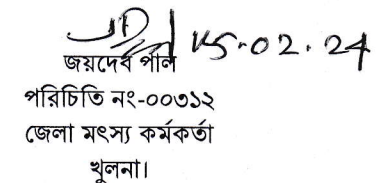 15.02.24
জয়দেব পাল
পরিচিতি নং-০০৩১২
জেলা মৎস্য কর্মকর্তা
খুলনা।